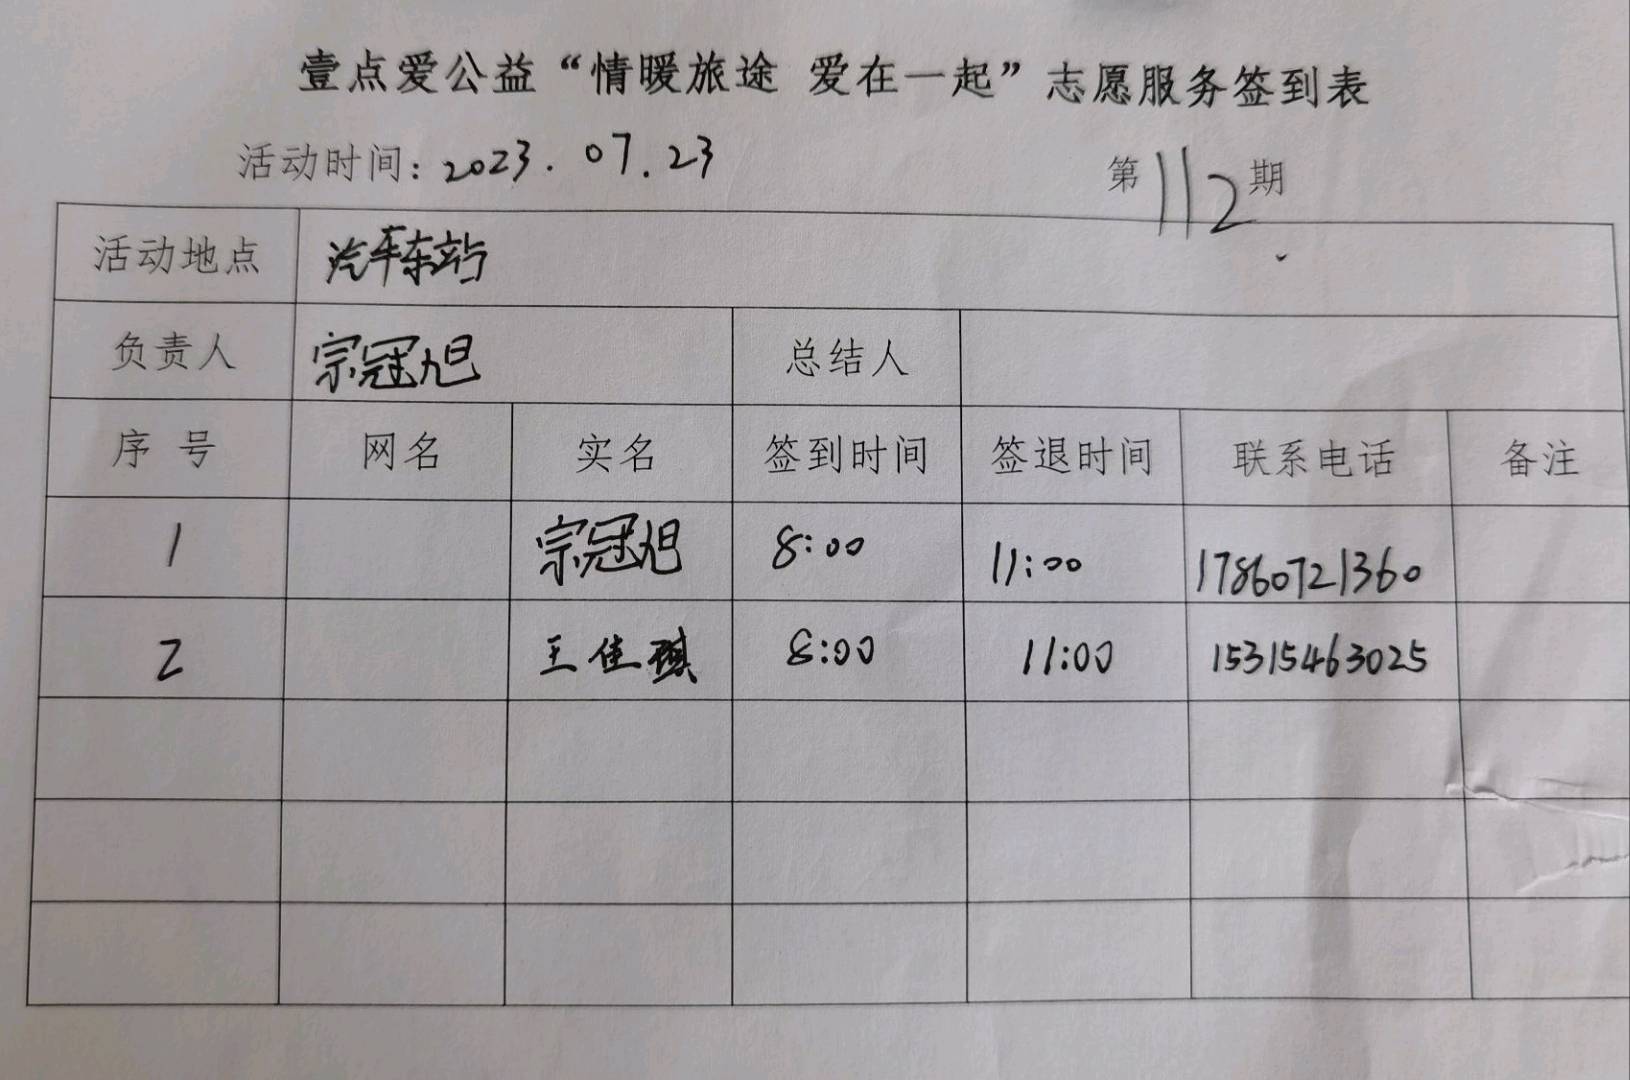 壹点爱公益“情暖旅途 爱在一起”志愿服务签到表
活动时间：2023.07.23 第112期
活动地点 汽车东站
负责人 宗冠旭 总结人
序号 网名 实名 签到时间 签退时间 联系电话 备注
1 宗冠旭 8:00 11:00 17860721360
2 王佳琪 8:00 11:00 15315463025